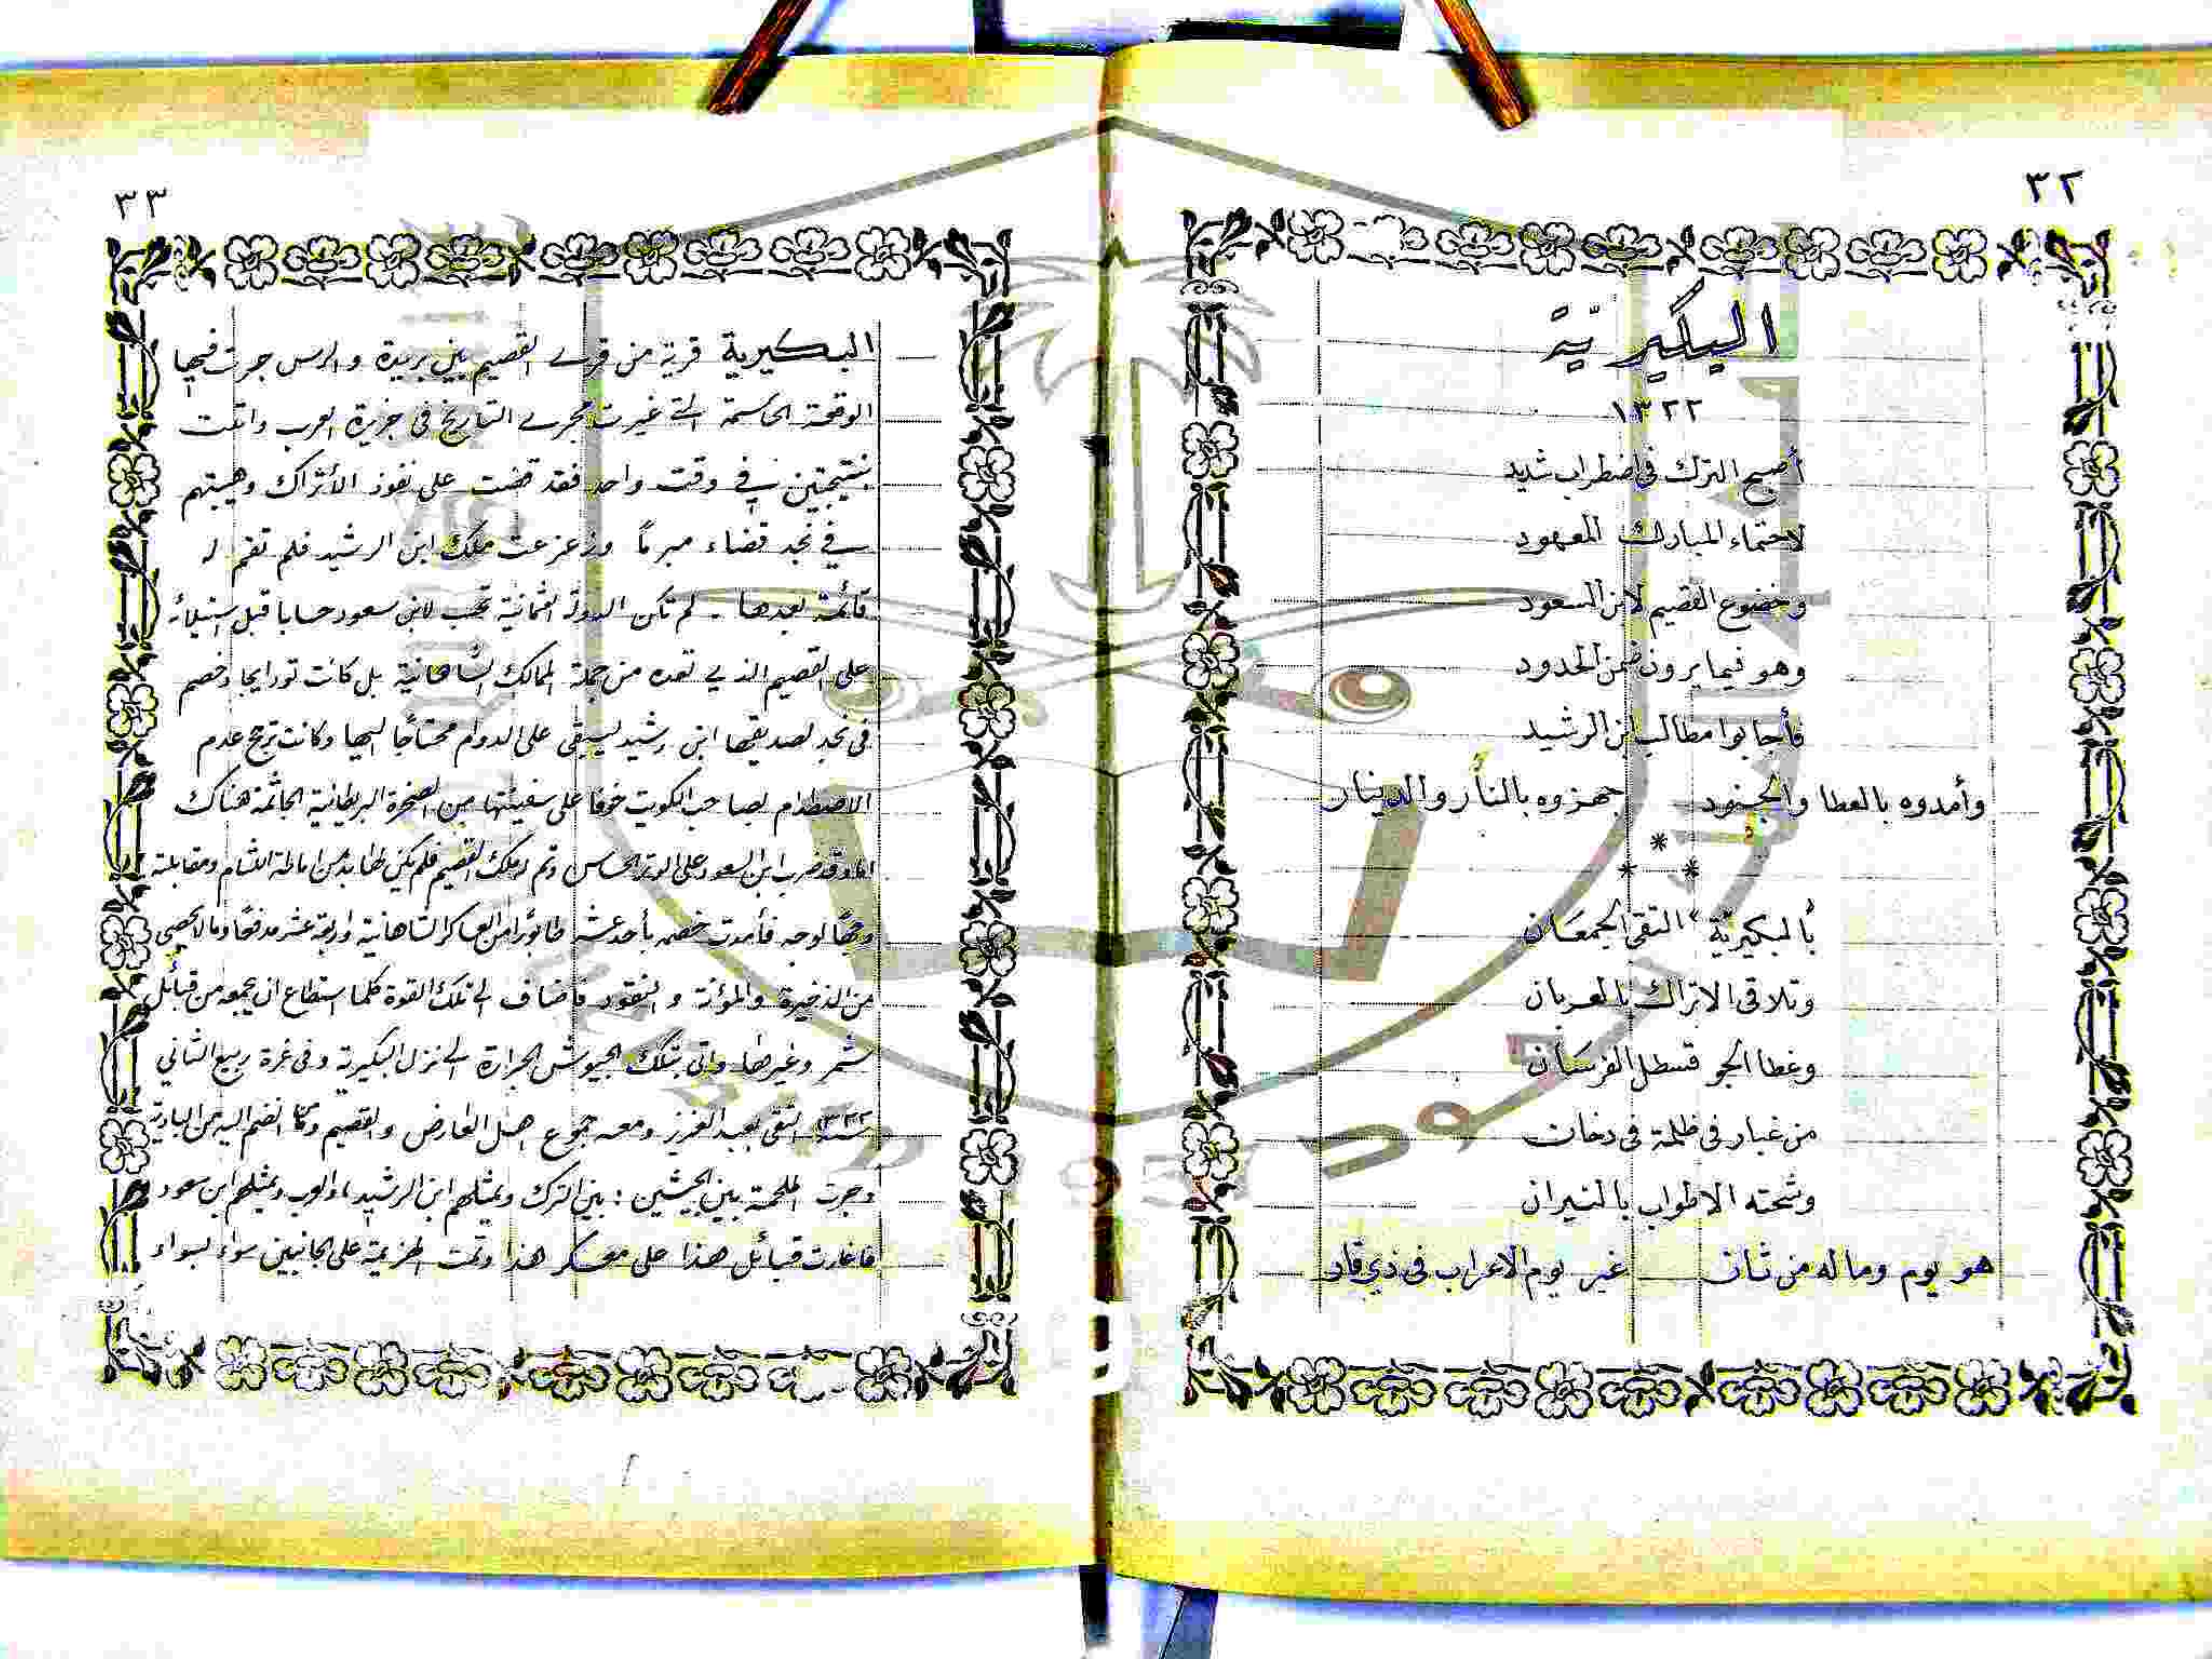 ٣٢
البكيرية
١٣٢٢
أصبح الترك في اضطراب شديد
لاحتماء المبارك المعهود
وخضوع القصيم لابن السعود
وهو فيما يرون ضمن الحدود
فأجابوا مطالب ابن الرشيد
وأمدوه بالعطا والجنود جهزوه بالنار والدينار
*
* *
بالبكيرية التقى الجمعان
وتلاقى الاتراك بالعربان
وغطا الجو قسطل الفرسان
من غبار في ظلمة في دخان
وشحته الاطواب بالنيران
هو يوم وما له من ثان غير يوم الاعراب في ذي قار
٣٣
البكيرية قرية من قرى القصيم بين بريدة والرس جرت فيها
الوقعة الحاسمة التي غيرت مجرى التاريخ في جزيرة العرب وأتت
بنتيجتين في وقت واحد فقد قضت على نفوذ الأتراك وهيبتهم
في نجد قضاء مبرماً وزعزعت ملك ابن الرشيد فلم تقم له
قائمة بعدها - لم تكن الدولة العثمانية تحسب لابن سعود حسابا قبل استيلائه
على القصيم الذي تعده من جملة الممالك الشاهانية بل كانت تود ايجاد خصم
في نجد لصديقها ابن رشيد ليبقى على الدوام محتاجًا اليها وكانت ترجح عدم
الاصطدام بصاحب الكويت خوفا على سفينتها من الصخرة البريطانية الجاثمة هناك
اما وقد ضرب ابن السعود على الوتر الحساس وتم له ملك القصيم فلم يكن لها بد من اماطة اللثام ومقابلته
وجهًا لوجه فأمدت خصمه بأحد عشر طابورًا من العساكر الشاهانية وأربعة عشر مدفعًا وما لا يحصى
من الذخيرة والمؤنة والنقود فأضاف الى تلك القوة كلما استطاع ان يجمعه من قبائل
شمر وغيرها وأتى بتلك الجيوش الجرارة الى نزل البكيرية وفي غرة ربيع الثاني
سنة ١٣٢٢ التقى بعبد العزيز ومعه جموع اهل العارض والقصيم ومما انضم اليه من البادية
وجرت الملحمة بين الجيشين: بين الترك ويمثلهم ابن الرشيد والعرب ويمثلهم ابن سعود
فاغارت قبائل هذا على معسكر هذا وتمت الهزيمة على الجانبين سواء بسواء